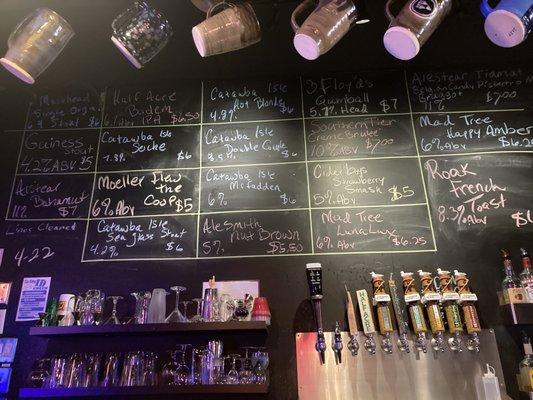 Half Acre
Bodem
$6.50
Catawba Isle
Hot Blonde
4.8%
$6
3 Floyd's
Gumball
5.7% Head
$7
Alestear Tiamat
11%
$7.00
Guiness
Stout
4.2% ABV
$5
Catawba Isle
Seiche
$6
Catawba Isle
Double Cuvée
$6
Southern Tier
10% ABV
$7.00
Mad Tree
Happy Amber
6% ABV
$6.25
Alestear
Bahamut
11%
$7
Moeller Flew
the
Coop
6% ABV
$5
Catawba Isle
McFadden
6%
$6
Ciderboys
Strawberry
Smash
5% ABV
$5
Roak
French
Toast
8.3% ABV
Lines Cleaned
4 22
Catawba Isle
Sea Glass Stout
4.2% ABV
$6
Alesmith
Nut Brown
5%
$5.50
Mad Tree
6% ABV
$6.25